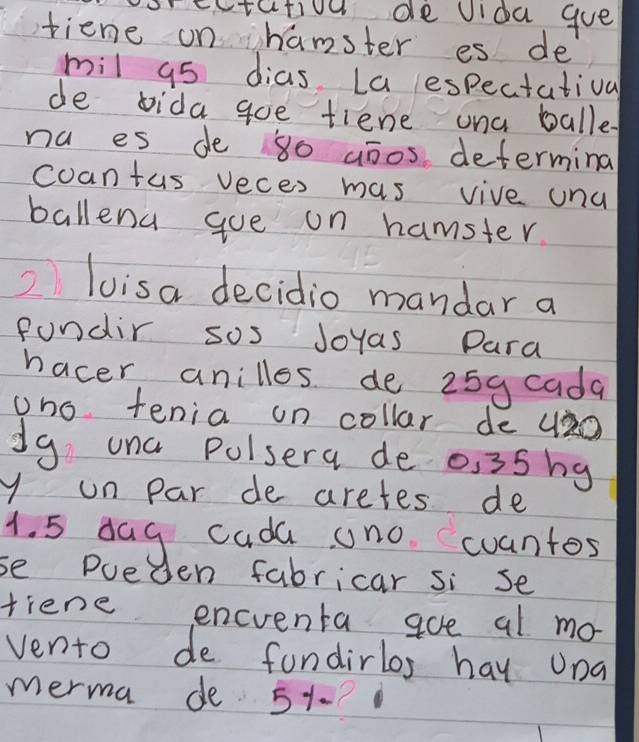 de vida que
tiene un hámster es de
mil 95 dias. La espectativa
de vida que tiene una balle-
na es de 80 años. determina
cuantas veces mas vive una
ballena que un hamster.
2) luisa decidio mandar a
fundir sus Joyas Para
hacer anillos de 25g cada
uno. tenia un collar de 420
dg, una Pulsera de 0,35 hg
y un Par de aretes de
1.5 dag cada uno. ¿cuantos
se Pueden fabricar si se
tiene encuenta que al mo-
vento de fundirlos hay una
merma de 5%?